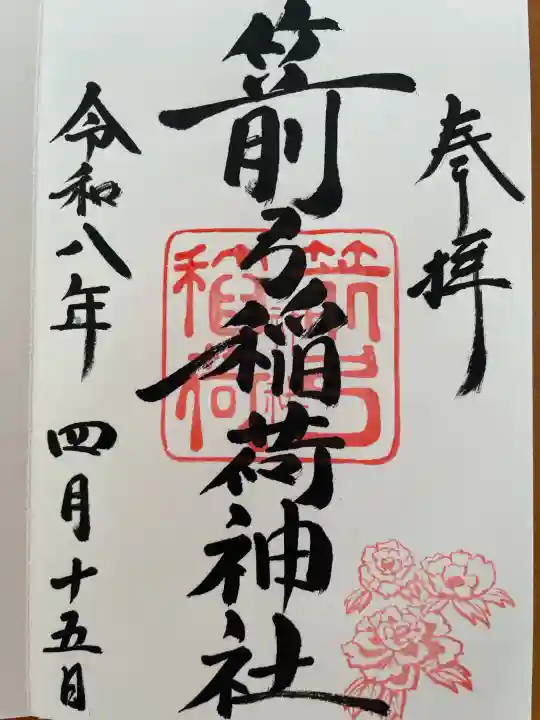 奉拝
箭弓稲荷神社
箭弓
稲荷
令和八年 四月十五日